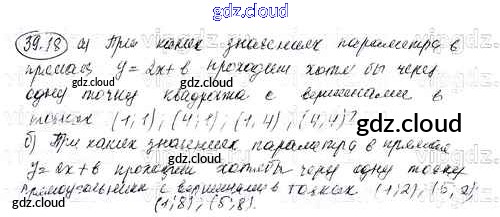 gdz.cloud
39.18 а) При каких значениях параметра в
прямая y=2x+в проходит хотя бы через
одну точку квадрата с вершинами в
точках (1;1), (4;1), (1,4), (4;4)?
gdz.cloud
б) При каких значениях параметра в прямая
y=2x+в проходит хотябы через одну точку
прямоугольника с вершинами в точках (1;2), (5,2)
(1;8), (5;8).
gdz.cloud
gdz.cloud